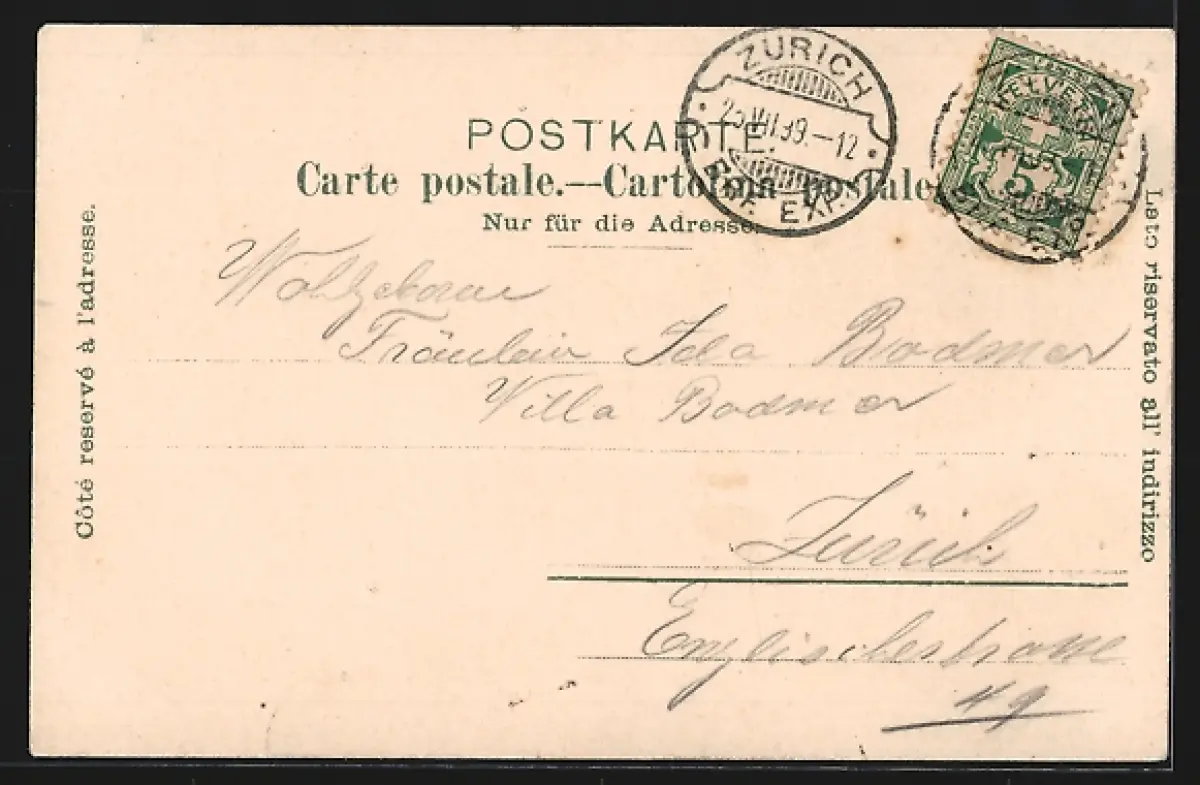 ZÜRICH
25.VII.99.-12
BRF. EXP.
HELVETIA
5
POSTKARTE.
Carte postale.—Cartolina postale
Nur für die Adresse.
Côté reservé à l'adresse.
Lato riservato all' indirizzo
Wohlgeboren
Fräulein Ida Bodmer
Villa Bodmer
Zürich
Englischestrasse
49